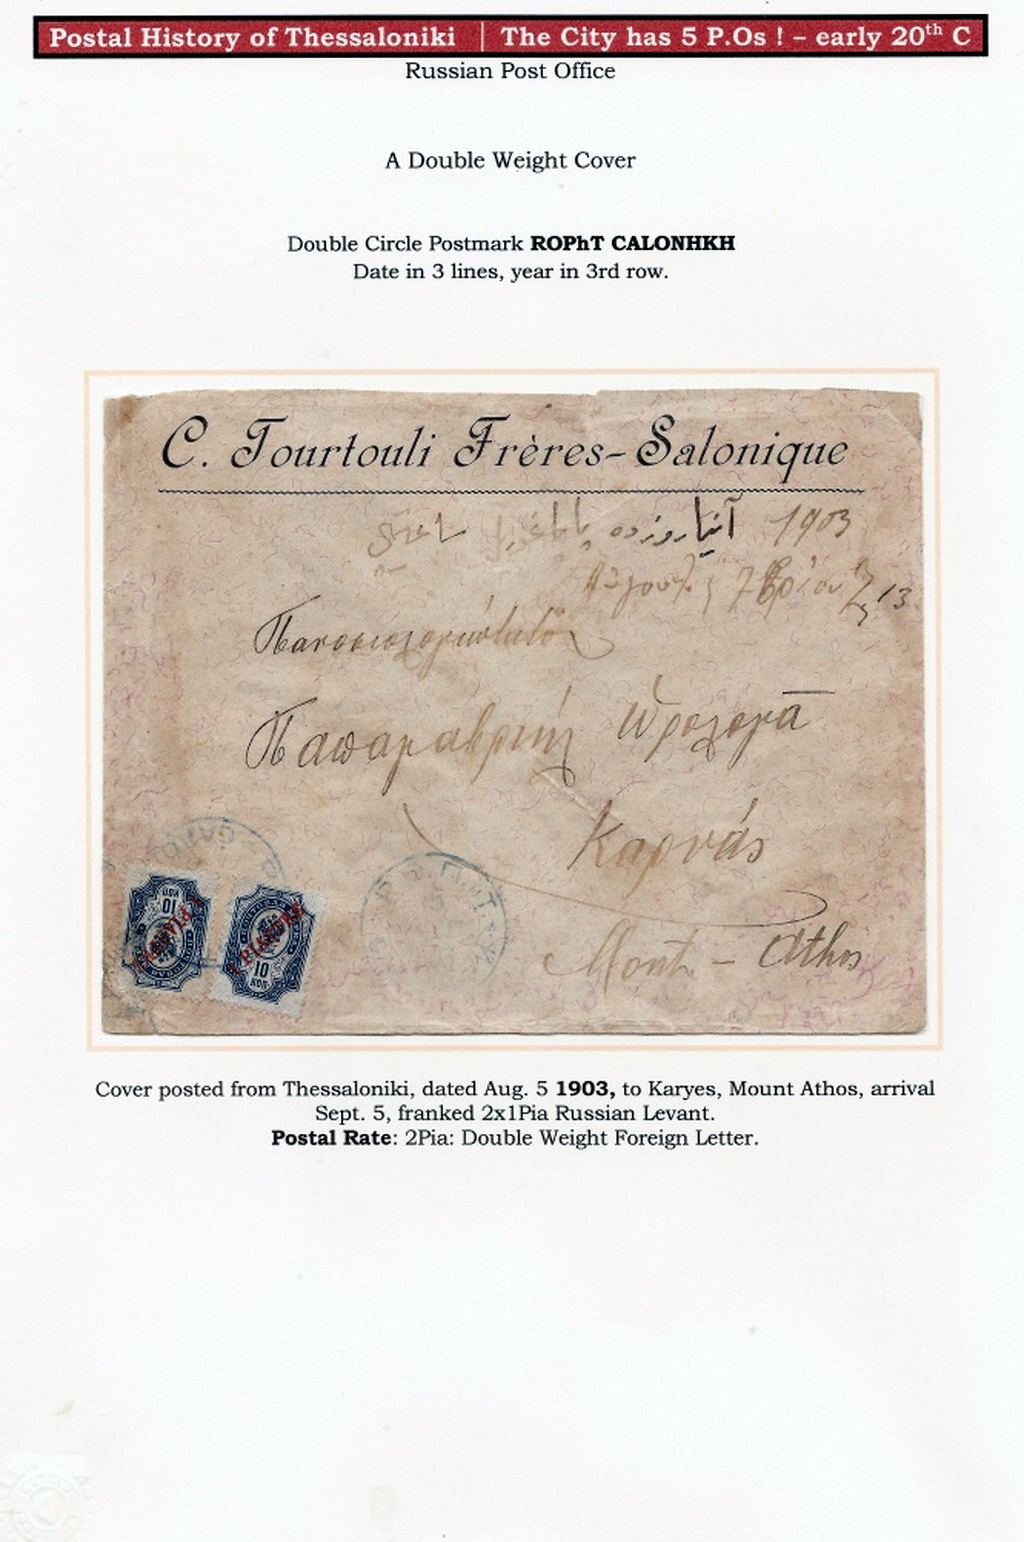 Postal History of Thessaloniki | The City has 5 P.Os ! – early 20th C
Russian Post Office
A Double Weight Cover
Double Circle Postmark ROPhT CALONHKH
Date in 3 lines, year in 3rd row.
C. Tourtouli Frères-Salonique
1903
13
Παπαγαβριήλ Ὡρολογᾶ
Καρυάς
Mont - Athos
10 КОП
1 PIASTRE
10 КОП
Cover posted from Thessaloniki, dated Aug. 5 1903, to Karyes, Mount Athos, arrival
Sept. 5, franked 2x1Pia Russian Levant.
Postal Rate: 2Pia: Double Weight Foreign Letter.